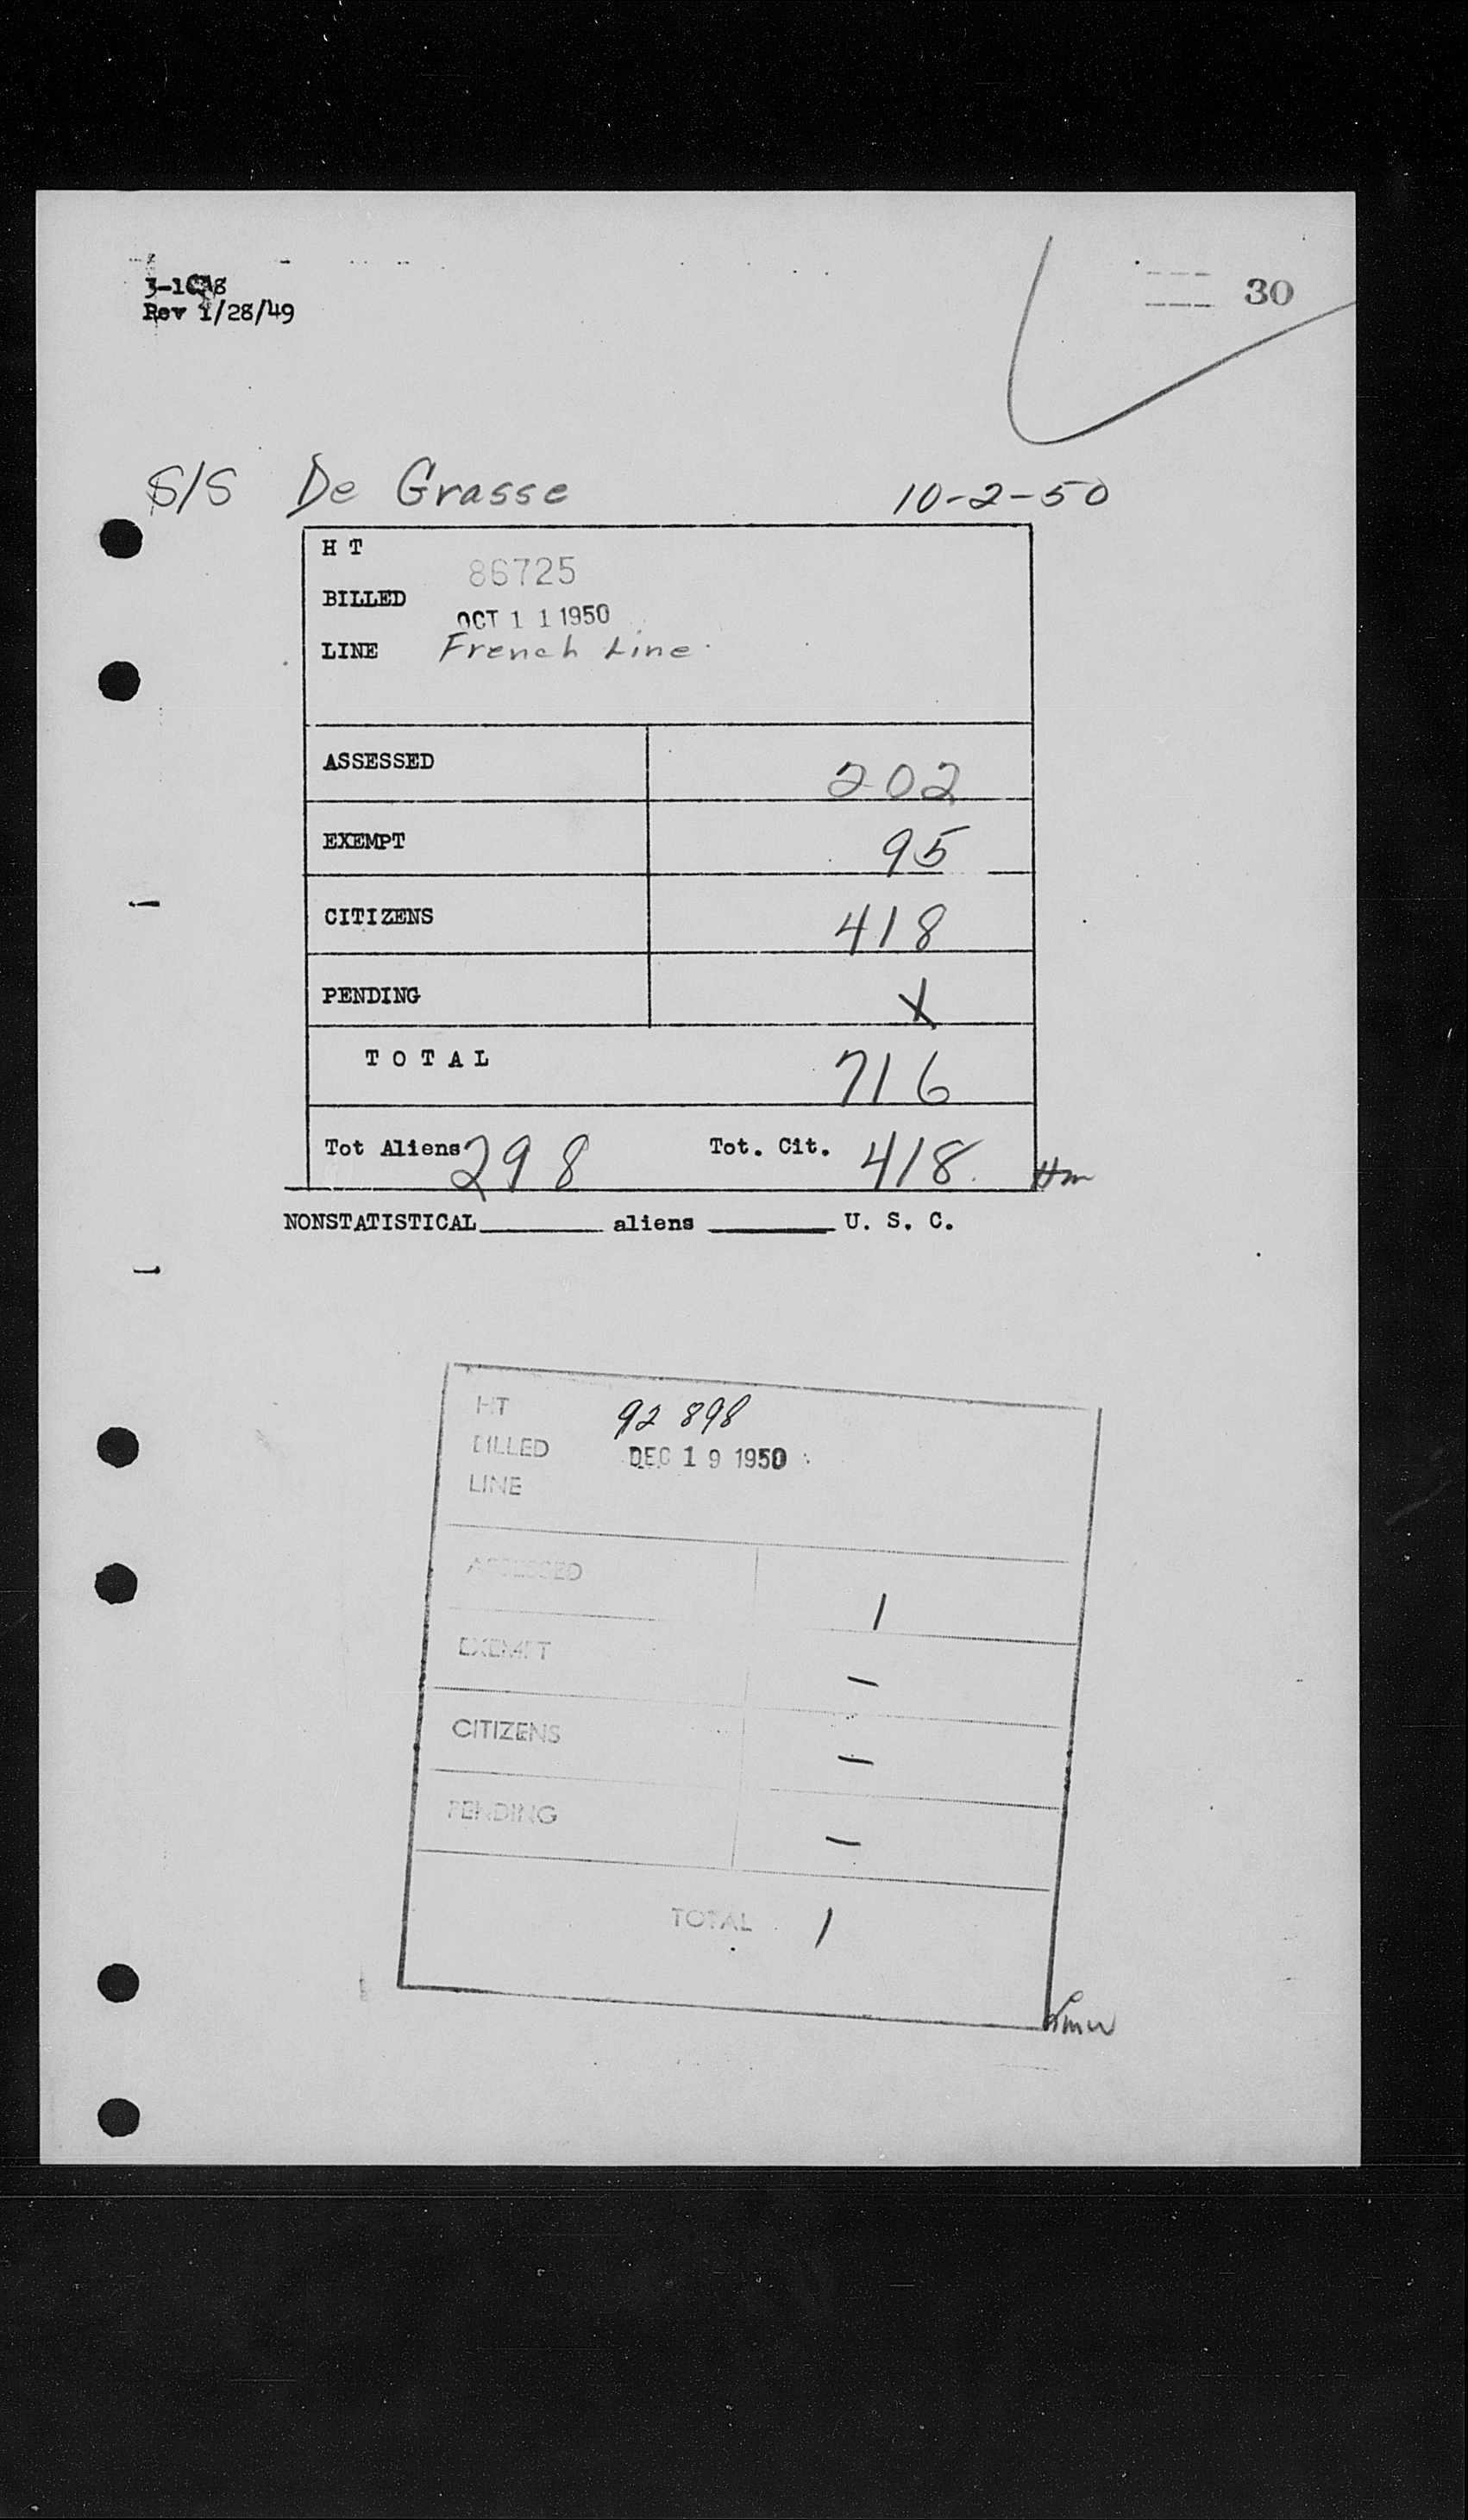 30
Rev 1/28/49
S/S De Grasse 10-2-50
H T 86725
BILLED OCT 1 1 1950
LINE French Line
ASSESSED 202
EXEMPT 95
CITIZENS 418
PENDING X
T O T A L 716
Tot Aliens 298 Tot. Cit. 418
NONSTATISTICAL ________ aliens ________ U. S. C.
HT 92 898
BILLED DEC 1 9 1950
LINE
ASSESSED 1
EXEMPT —
CITIZENS —
PENDING —
TOTAL 1